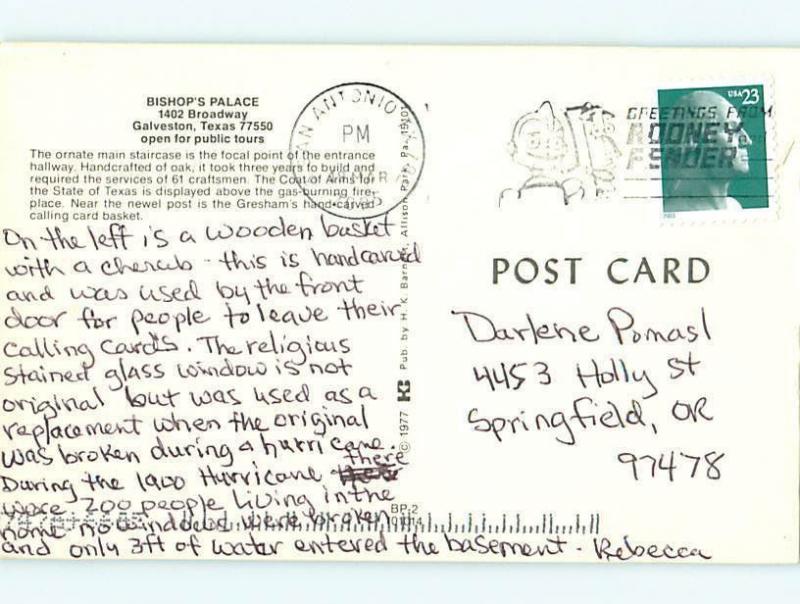 BISHOP'S PALACE
1402 Broadway
Galveston, Texas 77550
open for public tours
The ornate main staircase is the focal point of the entrance
hallway. Handcrafted of oak, it took three years to build and
required the services of 61 craftsmen. The Coat of Arms for
the State of Texas is displayed above the gas-burning fire-
place. Near the newel post is the Gresham's hand-carved
calling card basket.
On the left is a wooden basket
with a cherub - this is handcarved
and was used by the front
door for people to leave their
calling cards. The religious
stained glass window is not
original but was used as a
replacement when the original
was broken during a hurricane.
During the 1900 Hurricane there
were 200 people living in the
home no windows were broken
and only 3ft of water entered the basement - Rebecca
© 1977
Pub. by H. K. Barnett, Allison Park, Pa. 15101
BP-2
SAN ANTONIO
PM
MAR
GREETINGS FROM
ROONEY
FENDER
USA 23
POST CARD
Darlene Pomasl
4453 Holly St
Springfield, OR
97478